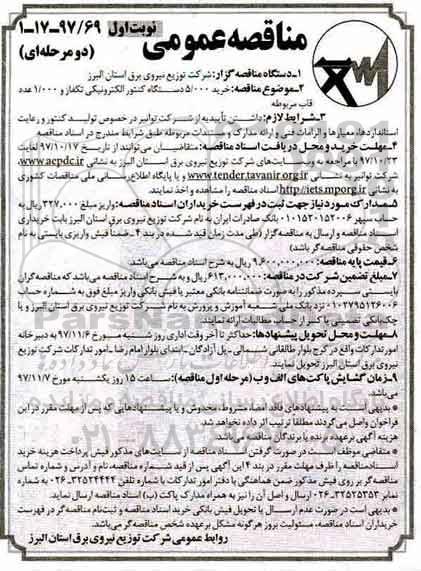 نوبت اول ۱-۱۷-۹۷/۶۹
مناقصه عمومی (دو مرحله‌ای)
۱-دستگاه مناقصه گزار: شرکت توزیع نیروی برق استان البرز
۲-موضوع مناقصه: خرید ۵/۰۰۰ دستگاه کنتور الکترونیکی تکفاز و ۱/۰۰۰ عدد
قاب مربوطه
۳-شرایط لازم: داشتن تأییدیه از شرکت توانیر در خصوص تولید کنتور و رعایت
استانداردها، معیارها و الزامات فنی و ارائه مدارک و مستندات مربوطه طبق شرایط مندرج در اسناد مناقصه
۴-مهلت خرید و محل دریافت اسناد مناقصه: متقاضیان می‌توانند از تاریخ ۹۷/۱۰/۱۷ لغایت
۹۷/۱۰/۲۳ با مراجعه به وب سایت‌های شرکت توزیع نیروی برق استان البرز به نشانی www.aepdc.ir،
شرکت توانیر به نشانی www.tender.tavanir.org.ir و یا پایگاه اطلاع‌رسانی ملی مناقصات کشوری
به نشانی http://iets.mporg.ir اسناد مناقصه را مشاهده و اخذ نمایند.
۵-مدارک مورد نیاز جهت ثبت در فهرست خریداران اسناد مناقصه: واریز مبلغ ۳۲۷/۰۰۰ ریال به
حساب سپهر ۰۱۰۱۵۲۰۱۵۲۰۰۶ بانک صادرات ایران به نام شرکت توزیع نیروی برق استان البرز بابت خریداری
اسناد مناقصه و ارسال به مناقصه گزار (طی مدت زمان قید شده در بند ۴-ضمنا فیش واریزی بایستی به نام
شخص حقوقی مناقصه گر باشد)
۶-قیمت پایه مناقصه: ۹,۶۰۰,۰۰۰,۰۰۰ ریال به شرح اسناد مناقصه می‌باشد.
۷-مبلغ تضمین شرکت در مناقصه: ۶۱۳,۰۰۰,۰۰۰ ریال و به شرح اسناد مناقصه می‌باشد که مناقصه گران
بایستی سپرده مذکور را به صورت ضمانتنامه بانکی معتبر یا فیش بانکی واریز مبلغ فوق به شماره حساب
۰۱۰۲۷۹۵۱۲۶۰۰۶ نزد بانک ملی شعبه آموزش و پرورش به نام شرکت توزیع نیروی برق استان البرز و یا
چک بانکی تضمینی یا کسر از حساب مطالبات ارائه نمایند.
۸-مهلت و محل تحویل پیشنهادها: حداکثر تا آخر وقت اداری روز شنبه مورخ ۹۷/۱۱/۶ به دبیرخانه
امور تدارکات واقع در کرج بلوار طالقانی شمالی-پل آزادگان-ابتدای بلوار امام رضا-امور تدارکات شرکت توزیع
نیروی برق استان البرز تحویل نمایند.
۹-زمان گشایش پاکت‌های الف و ب (مرحله اول مناقصه): ساعت ۱۵ روز یکشنبه مورخ ۹۷/۱۱/۷
* بدیهی است به پیشنهادهای فاقد امضاء، مشروط، مخدوش و یا پیشنهادهایی که پس از مهلت مقرر در این
فراخوان واصل می‌گردند مطلقا ترتیب اثر داده نخواهد شد.
هزینه آگهی بر عهده برنده یا برندگان مناقصه می‌باشد.
* متقاضی موظف است در صورت گرفتن اسناد مناقصه از سایت‌های مذکور فیش پرداخت هزینه خرید
اسناد مناقصه را ظرف مهلت مقرر در بند ۴ این آگهی پس از قید شماره مناقصه، نام و آدرس و شماره تماس
مناقصه گر بر روی فیش مذکور ضمن هماهنگی با دفتر امور تدارکات با شماره تلفن ۳۲۵۲۴۴۴۴-۰۲۶ به شماره
نمابر ۳۲۵۲۵۳۵۲-۰۲۶ ارسال و اصل آن را نیز به همراه مدارک پاکت (ب) اسناد مناقصه ارسال نماید.
* بدیهی است در صورت عدم ارسال یا تحویل فیش بانکی خرید اسناد مناقصه و ثبت نام مناقصه گر در فهرست
خریداران اسناد مناقصه، مسئولیت بروز هرگونه مشکل بر عهده شخص مناقصه گر می‌باشد.
روابط عمومی شرکت توزیع نیروی برق استان البرز